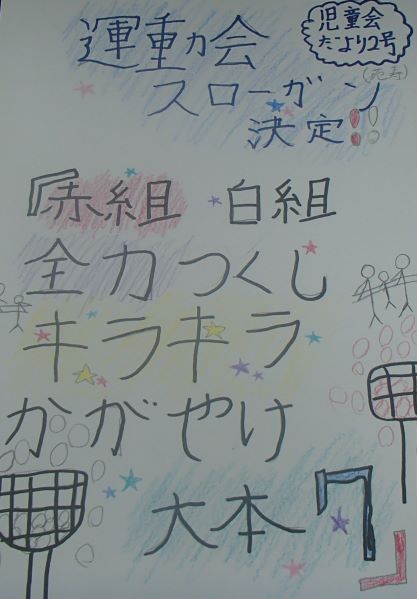 児童会
だより2号
運動会
スローガン
決定!!
『赤組 白組
全力つくし
キラキラ
かがやけ
大本っ』